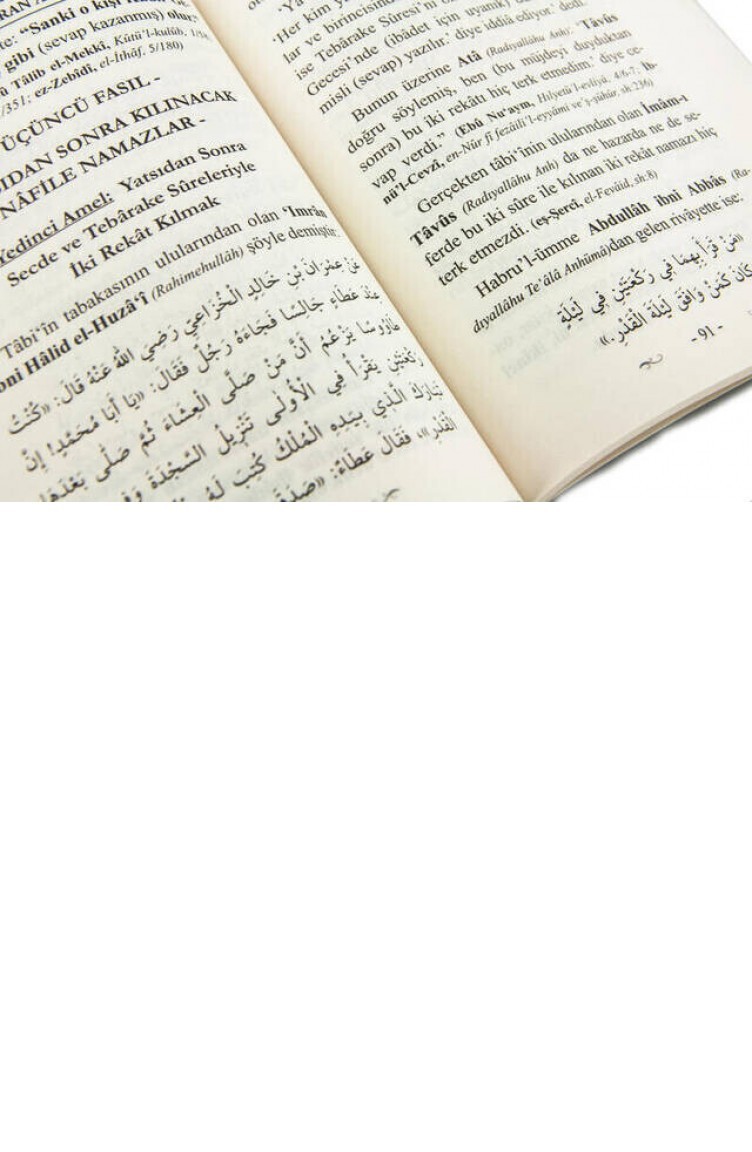 te: “Sanki o kişi
gibi (sevap kazanmış) olur”
Tâlib el-Mekkî, Kûtü'l-kulûb,
/351; ez-Zebîdî, el-İthâf, 5/180)
ÜÇÜNCÜ FASIL -
SIDAN SONRA KILINACAK
NÂFİLE NAMAZLAR -
Yedinci Amel: Yatsıdan Sonra
Secde ve Tebârake Sûreleriyle
İki Rekât Kılmak
Tâbi‘în tabakasının ulularından olan ‘Imrân
bni Hâlid el-Huzâ‘î (Rahimehullâh) şöyle demiştir:
عَنْ عِمْرَانَ بْنِ خَالِدٍ الْخُزَاعِيِّ رَضِيَ اللّٰهُ عَنْهُ قَالَ: «كُنْتُ
عِنْدَ عَطَاءٍ جَالِسًا فَجَاءَهُ رَجُلٌ فَقَالَ: «يَا أَبَا مُحَمَّدٍ! إِنَّ
طَاوُوسًا يَزْعُمُ أَنَّ مَنْ صَلَّى الْعِشَاءَ ثُمَّ صَلَّى بَعْدَهَا
رَكْعَتَيْنِ يَقْرَأُ فِي الْأُولَى تَنْزِيلُ السَّجْدَةَ وَفِي
تَبَارَكَ الَّذِي بِيَدِهِ الْمُلْكُ كُتِبَ لَهُ
الْقَدْرِ»، فَقَالَ عَطَاءٌ: «صَدَقَ
‘Her kim ya
lar ve birincisinde
ise Tebârake Sûresi’ni
Gecesi’nde (ibâdet için uyanık)
misli (sevap) yazılır.’ diye iddiâ ediyor.’ dedi.
Bunun üzerine Atâ (Radıyallâhu Anh): ‘Tâvûs
doğru söylemiş, ben (bu müjdeyi duyduktan
sonra) bu iki rekâtı hiç terk etmedim.’ diye ce-
vap verdi.” (Ebû Nu‘aym, Hilyetü’l-evliyâ, 4/6-7; İb-
nü’l-Cevzî, en-Nûr fî fezâili’l-eyyâmi ve’ş-şühûr, sh:236)
Gerçekten tâbi‘înin ulularından olan İmâm-ı
Tâvûs (Radıyallâhu Anh) da ne hazarda ne de se-
ferde bu iki sûre ile kılınan iki rekât namazı hiç
terk etmezdi. (eş-Şercî, el-Fevâid, sh:8)
Habru’l-ümme Abdullâh ibni Abbâs (Ra-
dıyallâhu Te‘âlâ Anhümâ)dan gelen rivâyette ise:
«مَنْ قَرَأَ بِهِمَا فِي رَكْعَتَيْنِ فِي لَيْلَةٍ
كَانَ كَمَنْ وَافَقَ لَيْلَةَ الْقَدْرِ.»
- 91 -